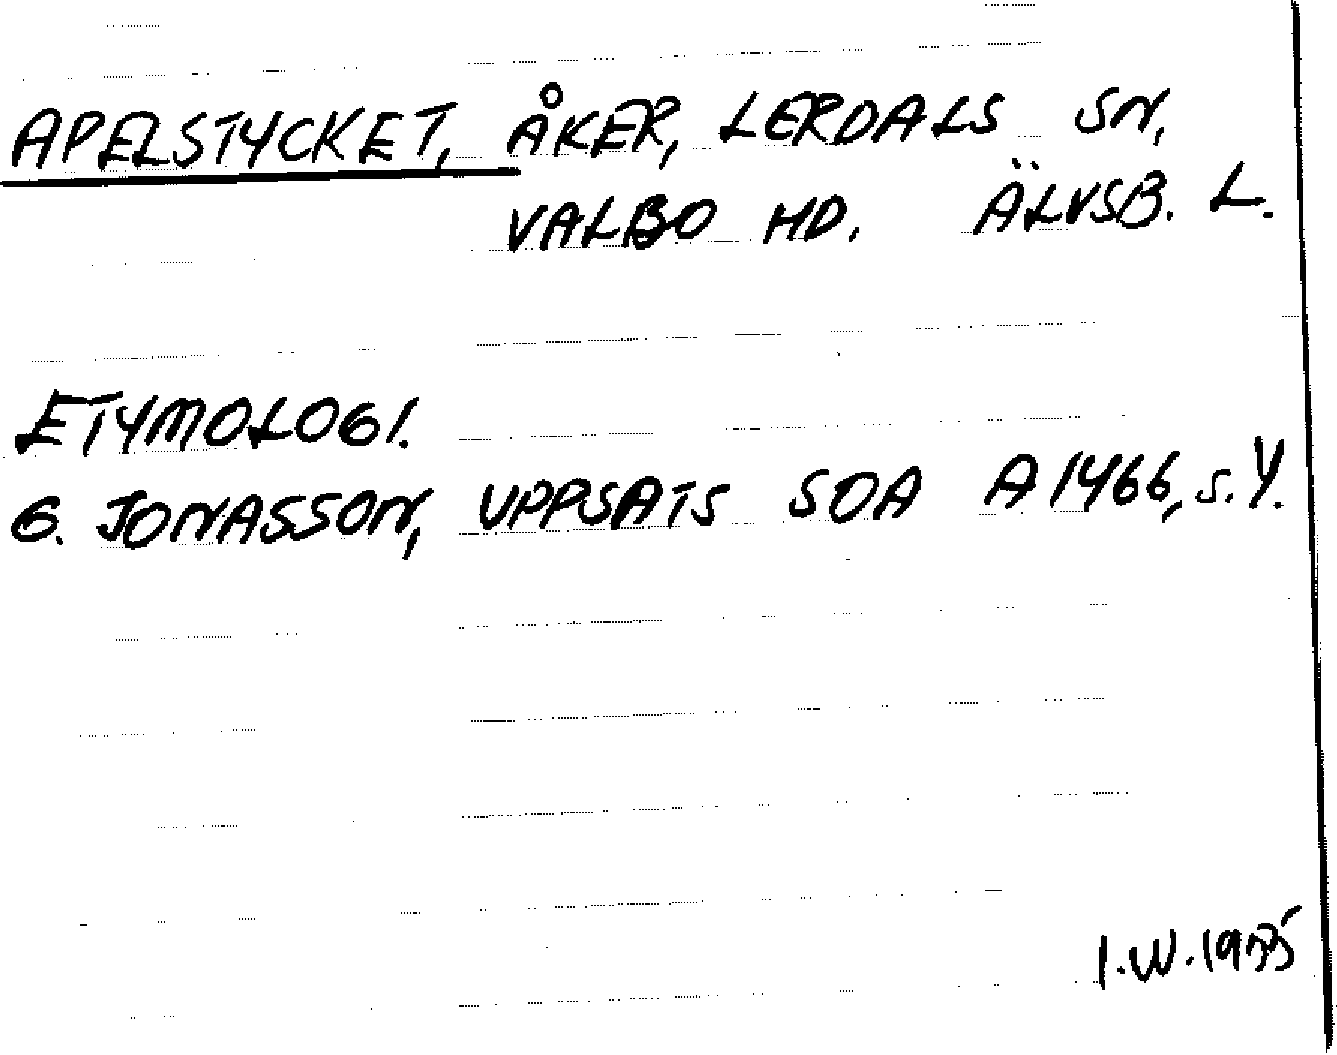 APELSTYCKET, ÅKER, LERDALS SN,
VALBO HD. ÄLVSB. L.
ETYMOLOGI.
G. JONASSON, UPPSATS SOA A1466, S. Y.
I.W.